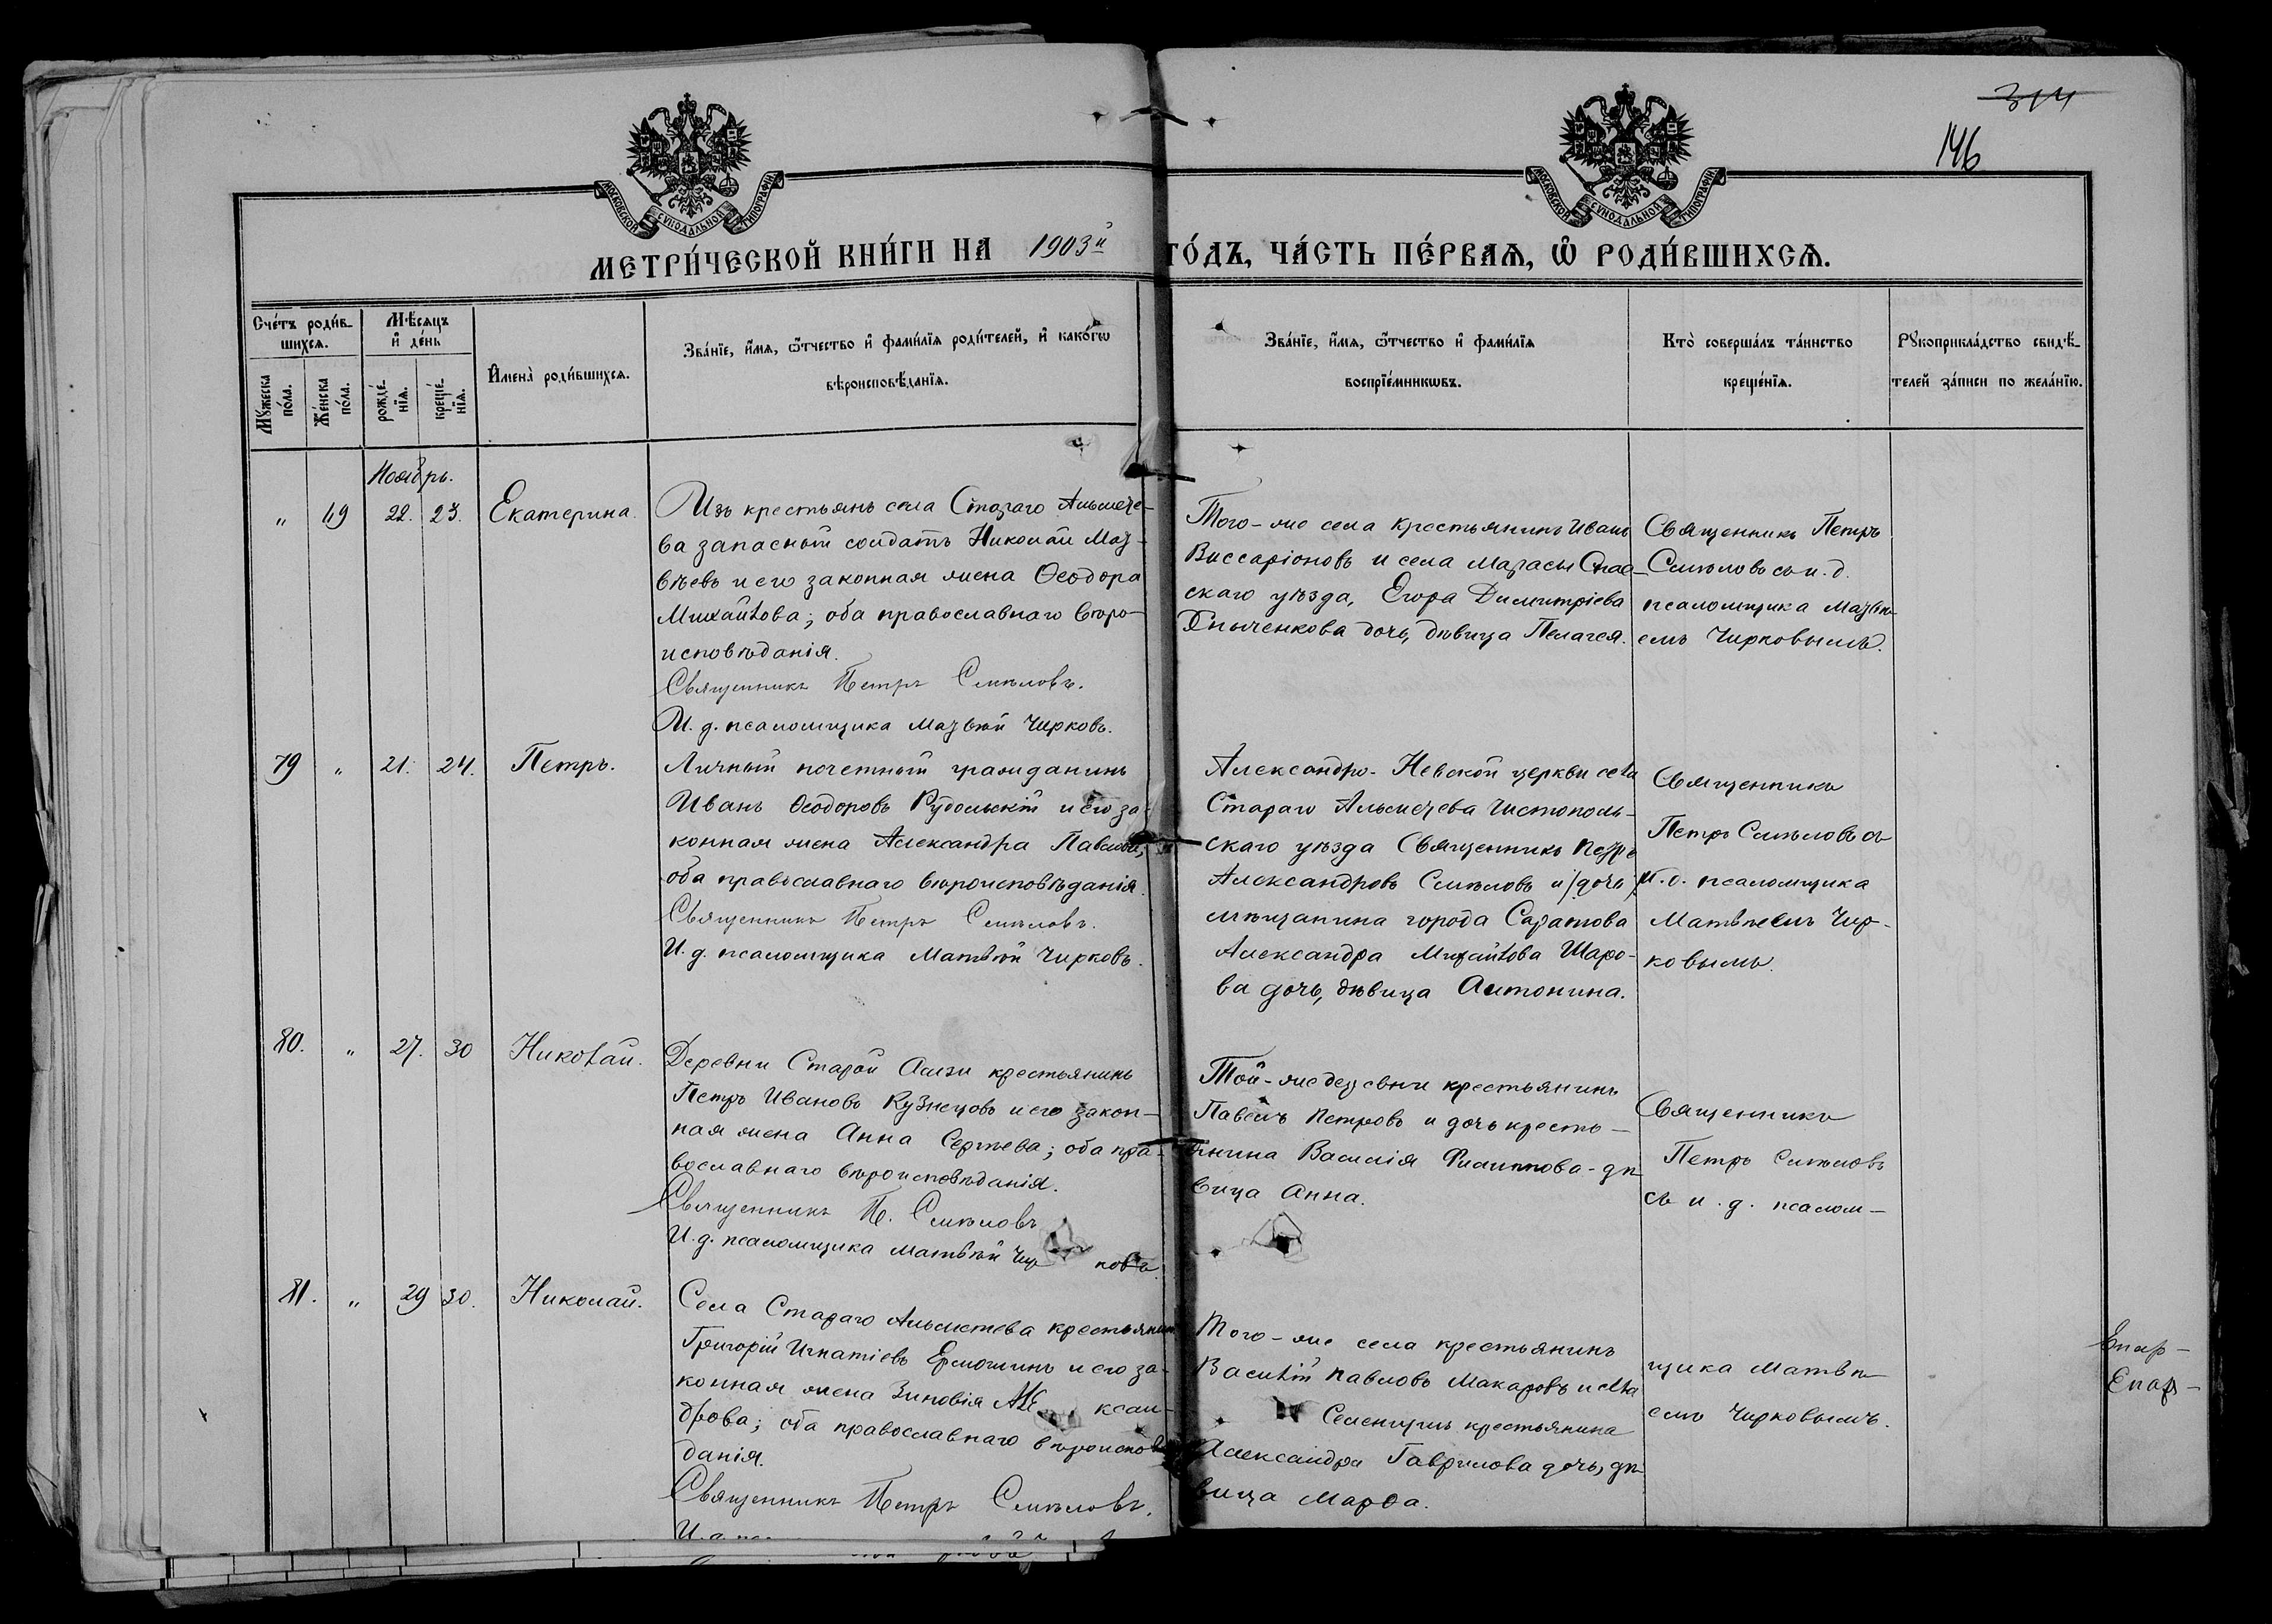 314
146
МОСКОВСКОЙ СѴНОДАЛЬНОЙ ТИПОГРАФІИ
МОСКОВСКОЙ СѴНОДАЛЬНОЙ ТИПОГРАФІИ
МЕТРИ́ЧЕСКОЙ КНИ́ГИ НА 1903й ГО́ДЪ, ЧА́СТЬ ПЕ́РВАЯ, Ѡ҆ РОДИ́ВШИХСЯ.
Сче́тъ роди́в-
шихся.
Мꙋ́жеска по́ла.
Же́нска по́ла.
Мѣ́сяцъ и҆ де́нь
рожде́-нїя.
креще́-нїя.
И҆мена̀ роди́вшихся.
Зва́нїе, и҆́мя, ѻ҆́тчество и҆ фами́лїя роди́телей, и҆ како́гѡ
вѣроисповѣ́данїя.
Зва́нїе, и҆́мя, ѻ҆́тчество и҆ фами́лїя
воспрїе́мникѡвъ.
Кто̀ соверша́лъ та́инство
креще́нїя.
Рꙋкоприкла́дство свидѣ́-
телей за́писи по жела́нїю.
Ноябрь.
" 49 22. 23. Екатерина.
Изъ крестьянъ села Стараго Альмете-
ва запасный солдатъ Николай Мат-
вѣевъ и его законная жена Ѳеодора
Михайлова; оба православнаго вѣро-
исповѣданія.
Священникъ Петръ Смѣловъ.
И. д. псаломщика Матвѣй Чирковъ.
Того-же села крестьянинъ Иванъ
Виссаріоновъ и села Марасы Спас-
скаго уѣзда, Егора Димитріева
Хныченкова дочь, дѣвица Пелагея.
Священникъ Петръ
Смѣловъ съ и. д.
псаломщика Матвѣ-
емъ Чирковымъ.
79 " 21. 24. Петръ.
Личный почетный гражданинъ
Иванъ Ѳеодоровъ Рудольскій и его за-
конная жена Александра Павлова;
оба православнаго вѣроисповѣданія.
Священникъ Петръ Смѣловъ.
И. д. псаломщика Матвѣй Чирковъ.
Александро-Невской церкви села
Стараго Альметева Чистополь-
скаго уѣзда Священникъ Петръ
Александровъ Смѣловъ и /дочь/
мѣщанина города Саратова
Александра Михайлова Шаро-
ва дочь, дѣвица Антонина.
Священникъ
Петръ Смѣловъ съ
и. д. псаломщика
Матвѣемъ Чир-
ковымъ.
80. " 27. 30 Николай.
Деревни Старой Амзи крестьянинъ
Петръ Ивановъ Кузнецовъ и его закон-
ная жена Анна Сергѣева; оба пра-
вославнаго вѣроисповѣданія.
Священникъ П. Смѣловъ
И. д. псаломщика Матвѣй Чирковъ.
Той-же деревни крестьянинъ
Павелъ Петровъ и дочь кресть-
янина Василія Филиппова-дѣ-
вица Анна.
Священникъ
Петръ Смѣловъ
съ и. д. псалом-
81. " 29 30. Николай.
Села Стараго Альметева крестьянинъ
Григорій Игнатіевъ Ермошинъ и его за-
конная жена Зиновія Алексан-
дрова; оба православнаго вѣроисповѣ-
данія.
Священникъ Петръ Смѣловъ.
Того-же села крестьянинъ
Василій Павловъ Макаровъ и села
крестьянина
Александра Гаврилова дочь, дѣ-
вица Марѳа.
щика Матвѣ-
емъ Чирковымъ.
Епар-
Епар-